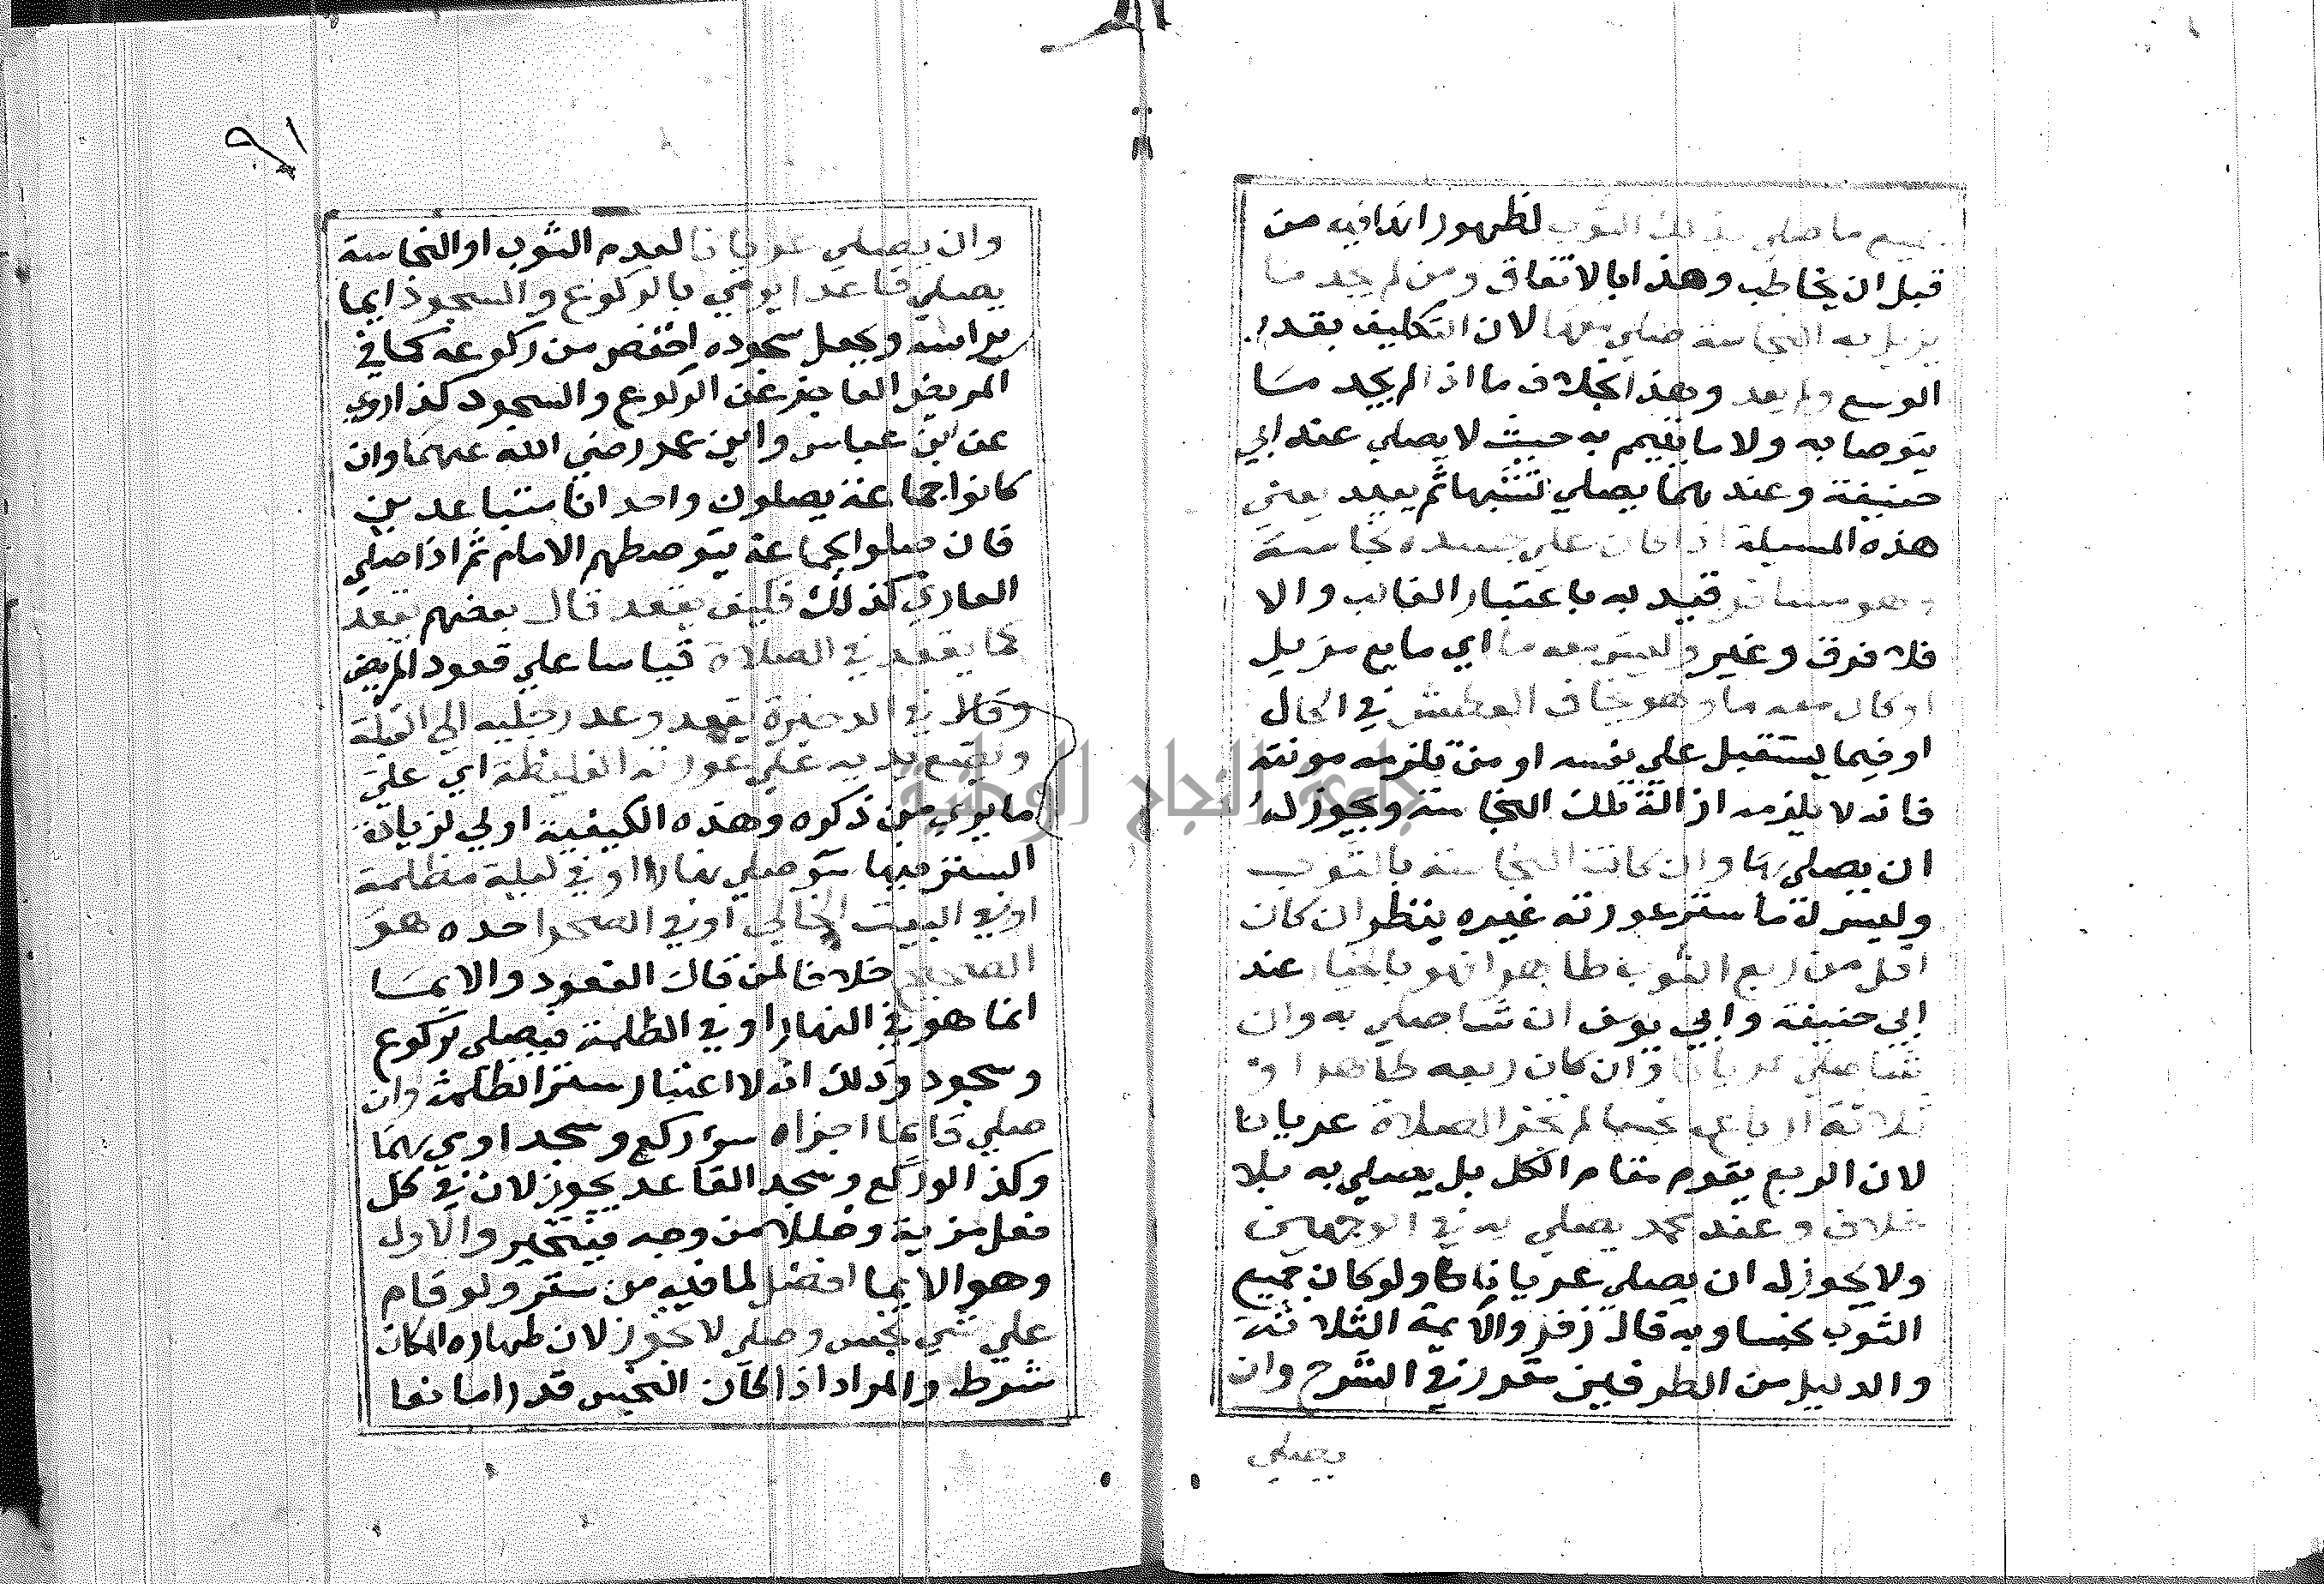 جميع ما صلي بذلك الثوب لظهور انه افيه من
قبل ان يخاطب وهذا بالاتفاق ومن لم يجد ما
يزيل به النجاسة صلي معها لان التكليف بقدر
الوسع ولم يعد وهذا بخلاف ما اذا لم يجد مسا
يتوضا به ولا ما يتيمم به حيث لا يصلي عند ابي
حنيفة وعندهما يصلي تشبها ثم يعيد يعني
هذه المسيلة اذا كان علي جسده نجاسة
وهو مسافر قيد به باعتبار الغالب والا
فلا فرق وغير وليس معه ما اي مايع مزيل
او كان معه ما وهو يخاف العطش في الحال
او فيما يستقبل علي نفسه او من تلزمه مونته
فانه لا يلزمه ازالة تلك النجاسة ويجوز له
ان يصلي بها وان كانت النجاسة بالثوب
وليس له ما ستر عورته غيره ينظر ان كان
اقل من ربع الثوب طاهرا فهو بالخيار عند
ابي حنيفة وابي يوسف ان شا صلي به وان
شا صلي عريانا وان كان ربعه طاهرا و
ثلاثة ارباعه نجسا لم تجز الصلاة عريانا
لان الربع يقوم مقام الكل بل يصلي به بلا
خلاف وعند محمد يصلي به في الوجهين
ولا يجوز له ان يصلي عريانا ولو كان جميع
الثوب نجسا وبه قال زفر والايمة الثلاثة
والدليل من الطرفين مقرر في الشرح وان
يصلي
٩١
وان يصلي عريانا لعدم الثوب او النجاسة
يصلي قاعدا يومي بالركوع والسجود ايما
براسه ويجعل سجوده اخفض من ركوعه كما في
المريض العاجز عن الركوع والسجود كذا روي
عن ابن عباس وابن عمر رضي الله عنهما وان
كانوا جماعة يصلون واحدانا متباعدين
فان صلوا بجماعة يتوصطهم الامام ثم اذا صلي
العاري كذلك فكيف يقعد قال بعضهم يقعد
كما يقعد في الصلاة قياسا علي قعود المريض
وقال في الدخيرة يقعد وعد رجليه الي القبلة
ويضع يديه علي عورته الغليظة اي علي
ما يوي من ذكره وهذه الكيفية اولي لزيادة
الستر فيها سو صلي نهارا او في ليلة مظلمة
او في البيت الخالي او في الصحرا حده هو
الصحيح خلافا لمن قال القعود والايمسا
انما هو في النهار او في الظلمة فيصلي بركوع
وسجود وذلك انه لا اعتبار ستر الظلمة وان
صلي قايما اجزاه سو ركع وسجد او مي بهما
وكذا لو ركع وسجد القاعد يجوز لان في كل
فعل مزية وخللا من وجه فيتخير والاول
وهو الايما افضل لما فيه من ستر ولو قام
علي شي نجس وصلي لا تجوز لان طهاره المكان
شرط والمراد اذا كان النجس قدرا مانعا
جامعة النجاح الوطنية